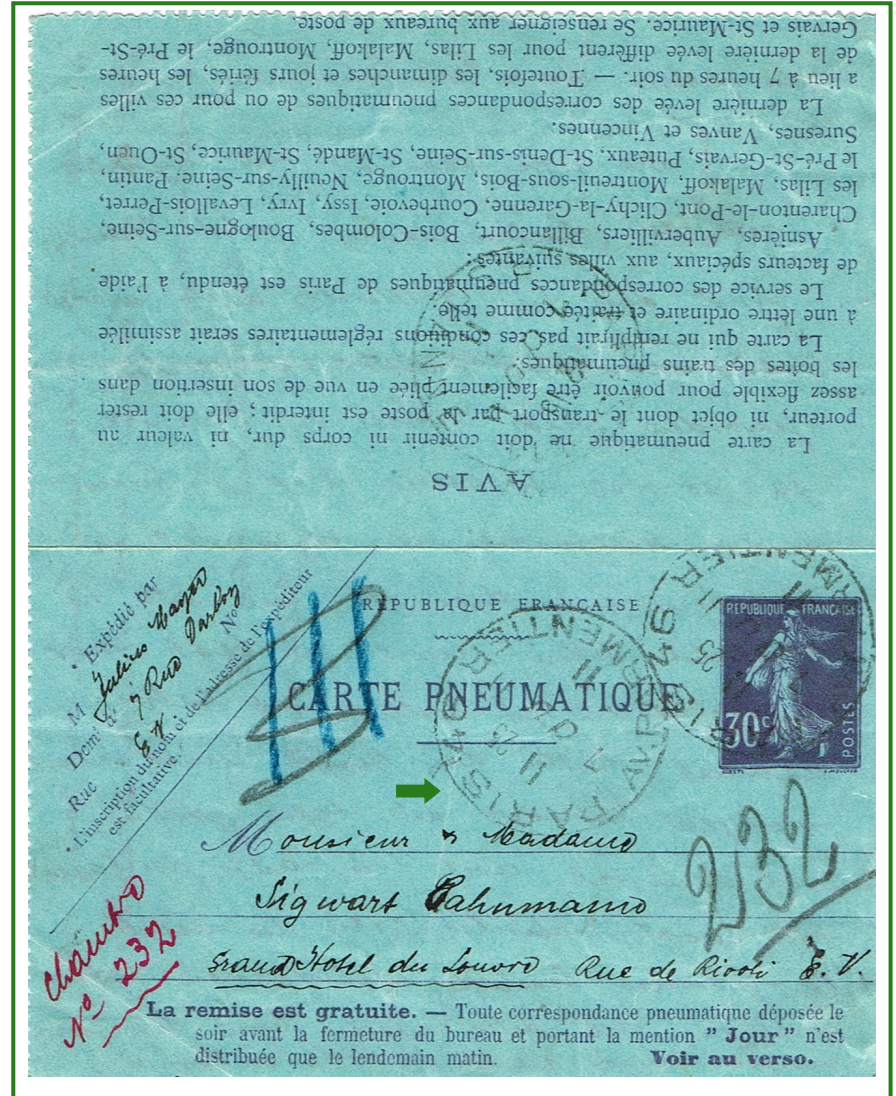 AVIS
La carte pneumatique ne doit contenir ni corps dur, ni valeur au
porteur, ni objet dont le transport par la poste est interdit ; elle doit rester
assez flexible pour pouvoir être facilement pliée en vue de son insertion dans
les boîtes des trains pneumatiques.
La carte qui ne remplirait pas ces conditions réglementaires serait assimilée
à une lettre ordinaire et traitée comme telle.
Le service des correspondances pneumatiques de Paris est étendu, à l'aide
de facteurs spéciaux, aux villes suivantes :
Asnières, Aubervilliers, Billancourt, Bois-Colombes, Boulogne-sur-Seine,
Charenton-le-Pont, Clichy-la-Garenne, Courbevoie, Issy, Ivry, Levallois-Perret,
les Lilas, Malakoff, Montreuil-sous-Bois, Montrouge, Neuilly-sur-Seine, Pantin,
le Pré-St-Gervais, Puteaux, St-Denis-sur-Seine, St-Mandé, St-Maurice, St-Ouen,
Suresnes, Vanves et Vincennes.
La dernière levée des correspondances pneumatiques de ou pour ces villes
a lieu à 7 heures du soir. — Toutefois, les dimanches et jours fériés, les heures
de la dernière levée diffèrent pour les Lilas, Malakoff, Montrouge, le Pré-St-
Gervais et St-Maurice. Se renseigner aux bureaux de poste.
Expédié par
M Julius Mayer
Demt à 7 Rue Darboy
Rue E.V. No
L'inscription du nom et de l'adresse de l'expéditeur
est facultative.
RÉPUBLIQUE FRANÇAISE
CARTE PNEUMATIQUE
PARIS 94 AV. PARMENTIER
11 23
PARIS 94
RMENTIER
REPUBLIQUE FRANÇAISE
30c
POSTES
232
Monsieur & Madame
Sigwart
Grand Hotel du Louvre Rue de Rivoli E.V.
Chambre
No 232
La remise est gratuite. — Toute correspondance pneumatique déposée le
soir avant la fermeture du bureau et portant la mention " Jour " n'est
distribuée que le lendemain matin. Voir au verso.